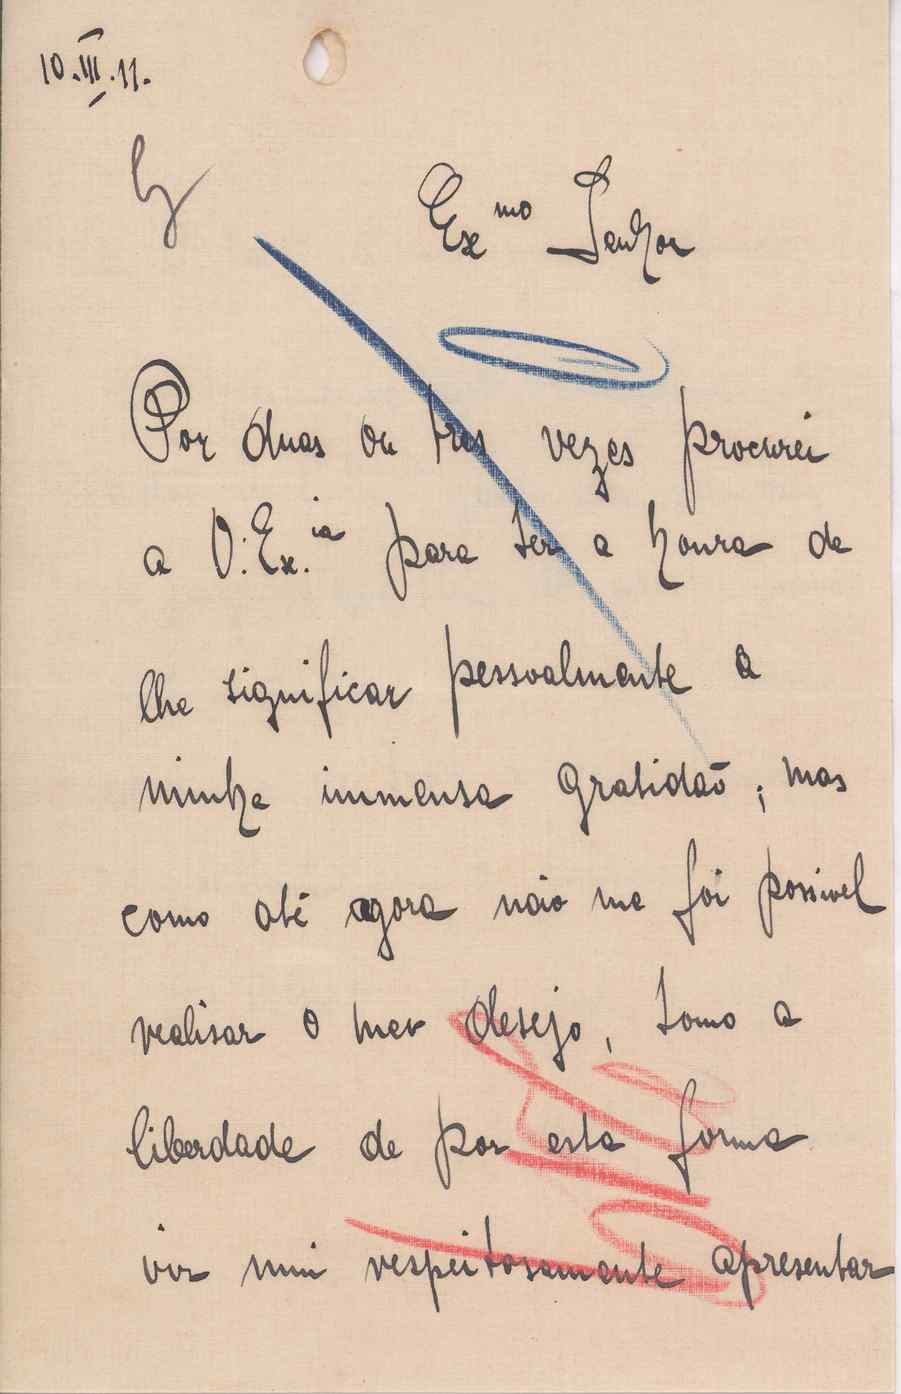 10.III.11.
Ex.mo Senhor
Por duas ou tres vezes procurei
a V. Ex.ia para ter a honra de
lhe significar pessoalmente a
minha immensa gratidão; mas
como até agora não me foi possivel
realisar o meu desejo, tomo a
liberdade de por esta forma
vir mui respeitosamente apresentar